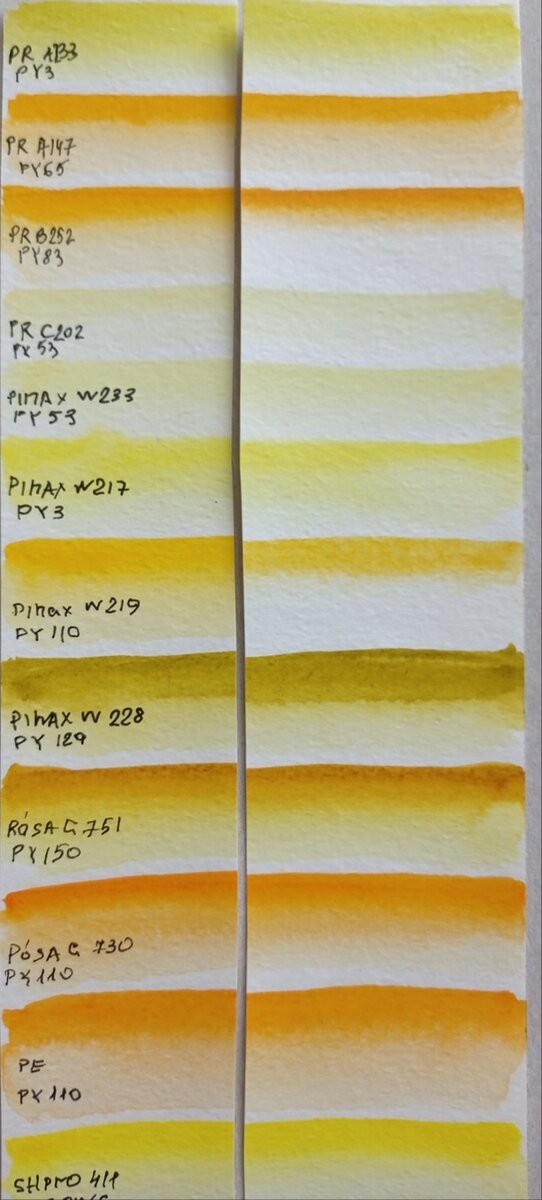 PR A133
PY3
PR A147
PY65
PR B252
PY83
PR C202
PY 53
PINAX W233
PY 53
PINAX W217
PY3
Pinax W219
PY 110
PINAX W 228
PY 129
RÓSA G 751
PY150
RÓSA G 730
PY110
PE
PY110